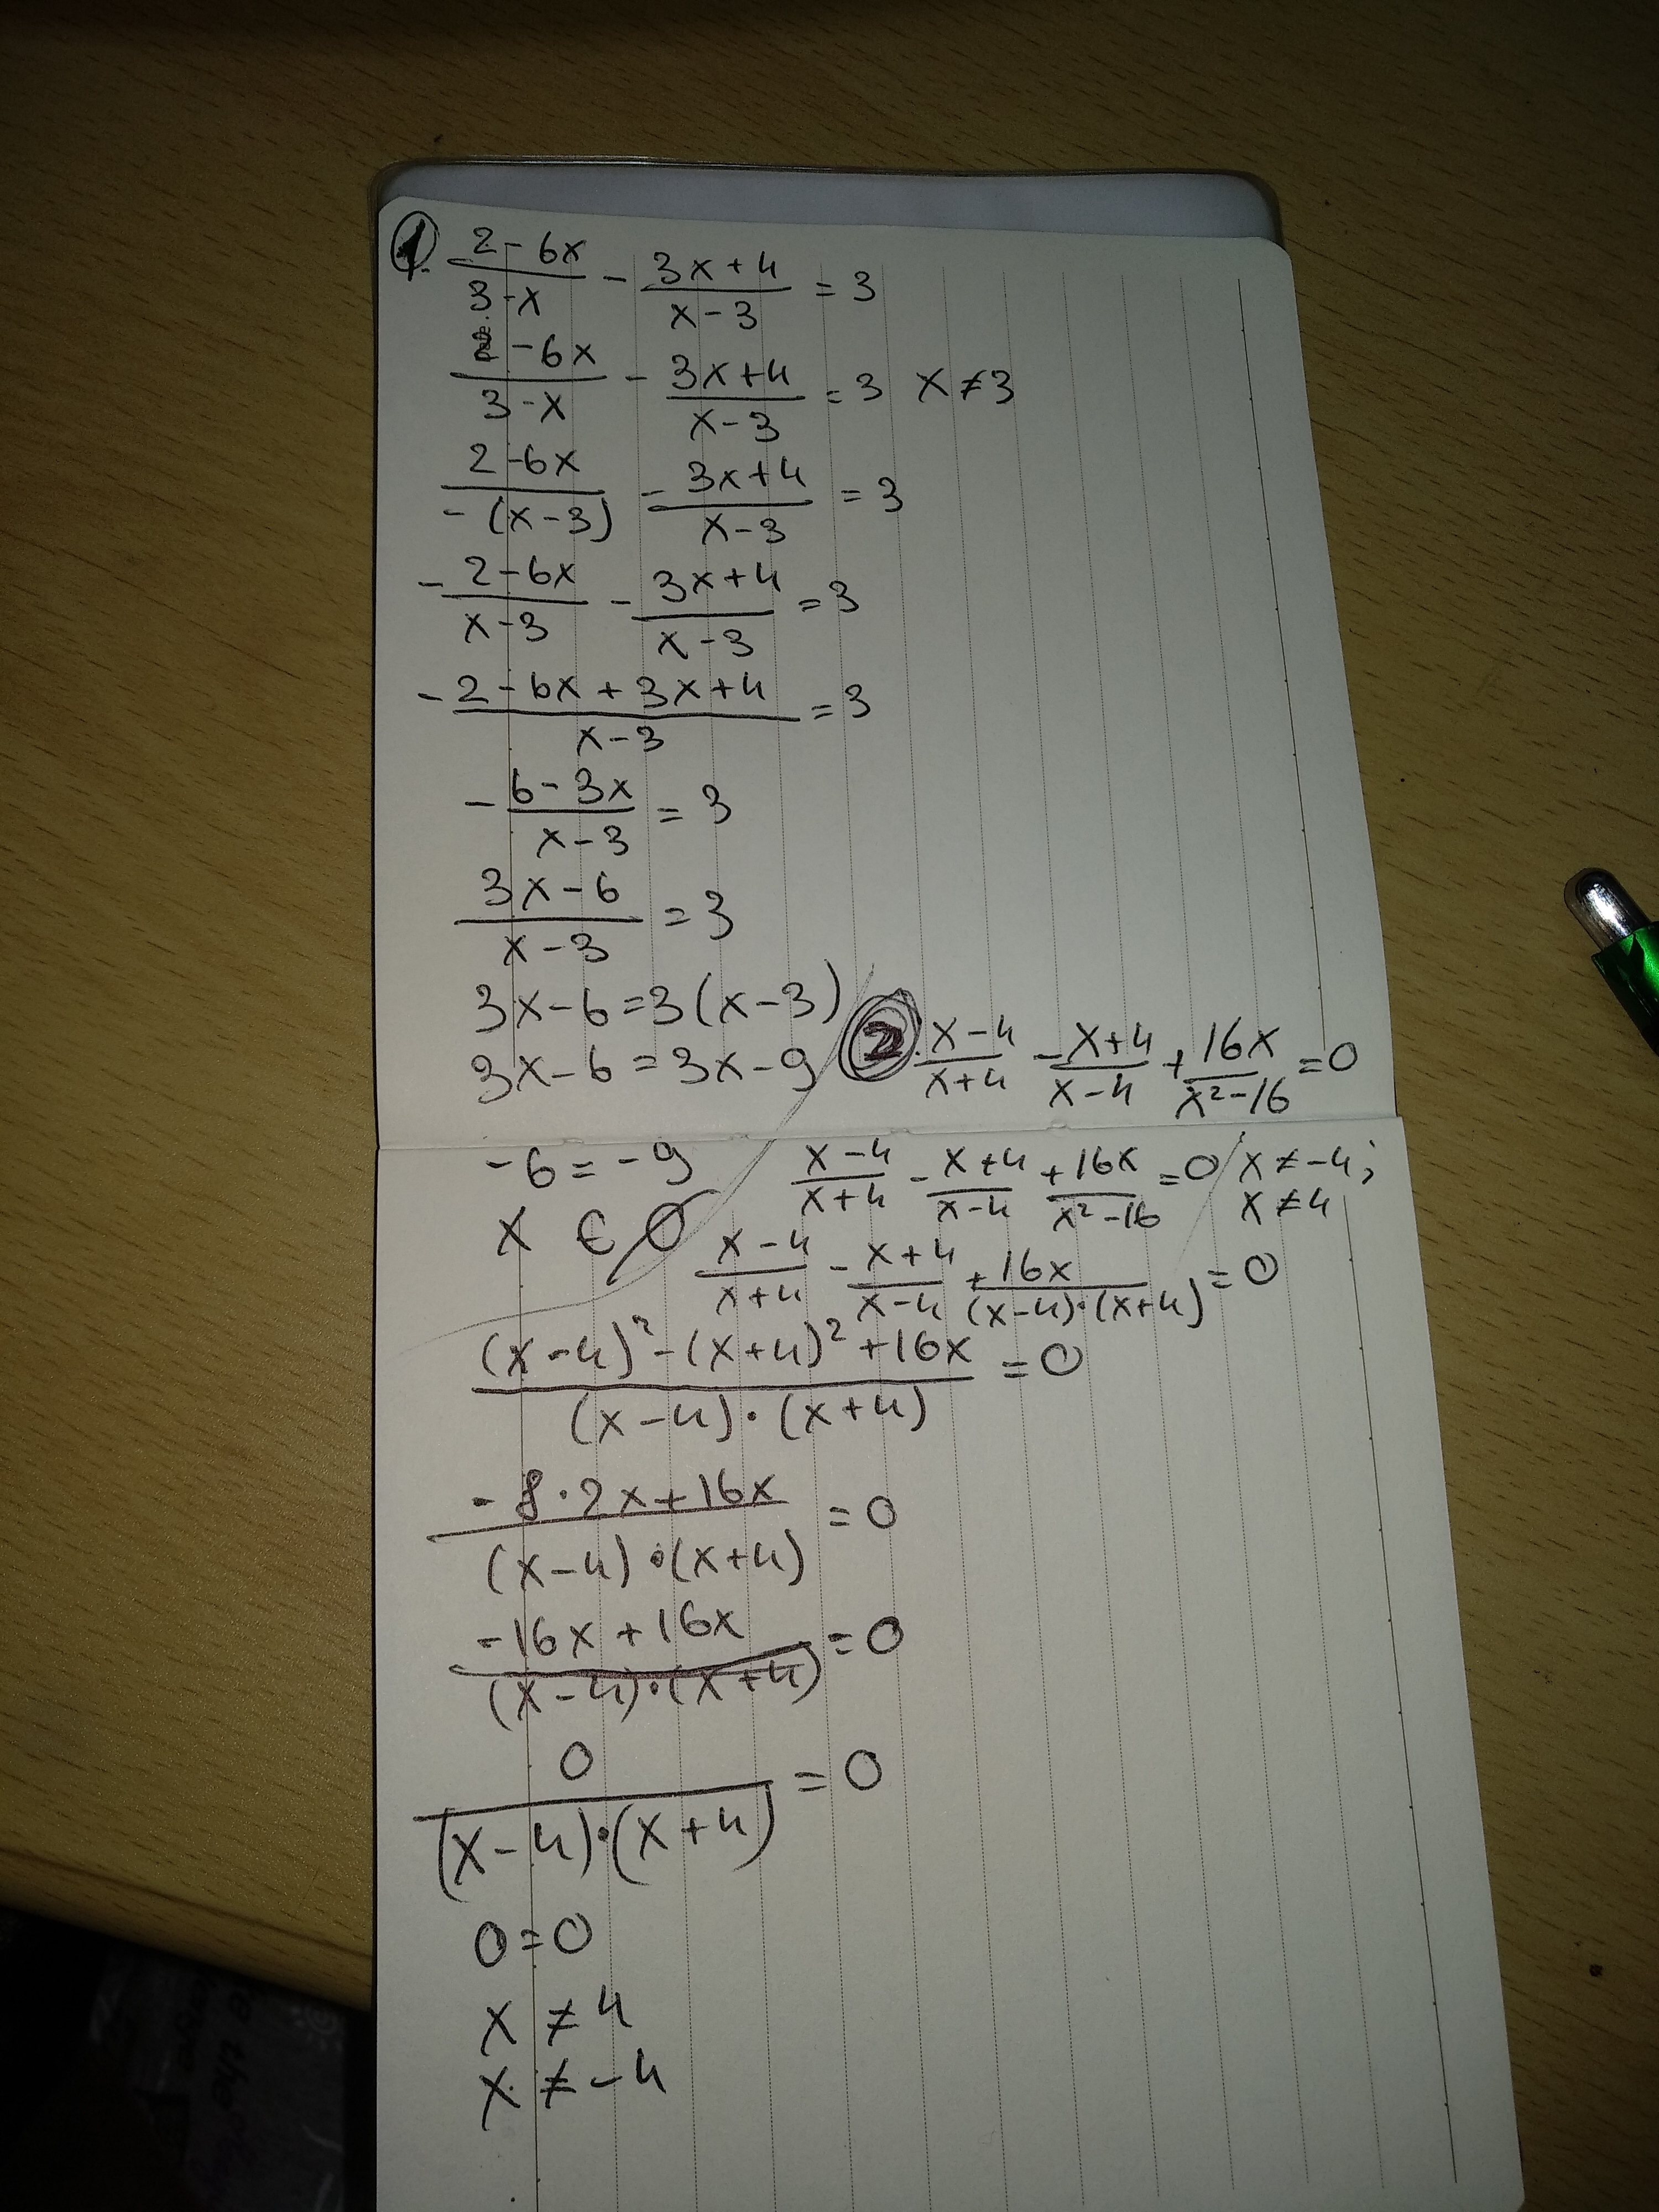 1. (2-6x)/(3-x) - (3x+4)/(x-3) = 3
(2-6x)/(3-x) - (3x+4)/(x-3) = 3 x≠3
(2-6x)/(-(x-3)) - (3x+4)/(x-3) = 3
-(2-6x)/(x-3) - (3x+4)/(x-3) = 3
-(2-6x+3x+4)/(x-3) = 3
-(6-3x)/(x-3) = 3
(3x-6)/(x-3) = 3
3x-6=3(x-3)
3x-6=3x-9
-6=-9
x ∈ Ø
2. (x-4)/(x+4) - (x+4)/(x-4) + 16x/(x²-16) = 0
(x-4)/(x+4) - (x+4)/(x-4) + 16x/(x²-16) = 0 / x≠-4;
x≠4
(x-4)/(x+4) - (x+4)/(x-4) + 16x/((x-4)·(x+4)) = 0
((x-4)²-(x+4)²+16x)/((x-4)·(x+4)) = 0
(-8·2x+16x)/((x-4)·(x+4)) = 0
(-16x+16x)/((x-4)·(x+4)) = 0
0/((x-4)·(x+4)) = 0
0=0
x ≠ 4
x ≠ -4